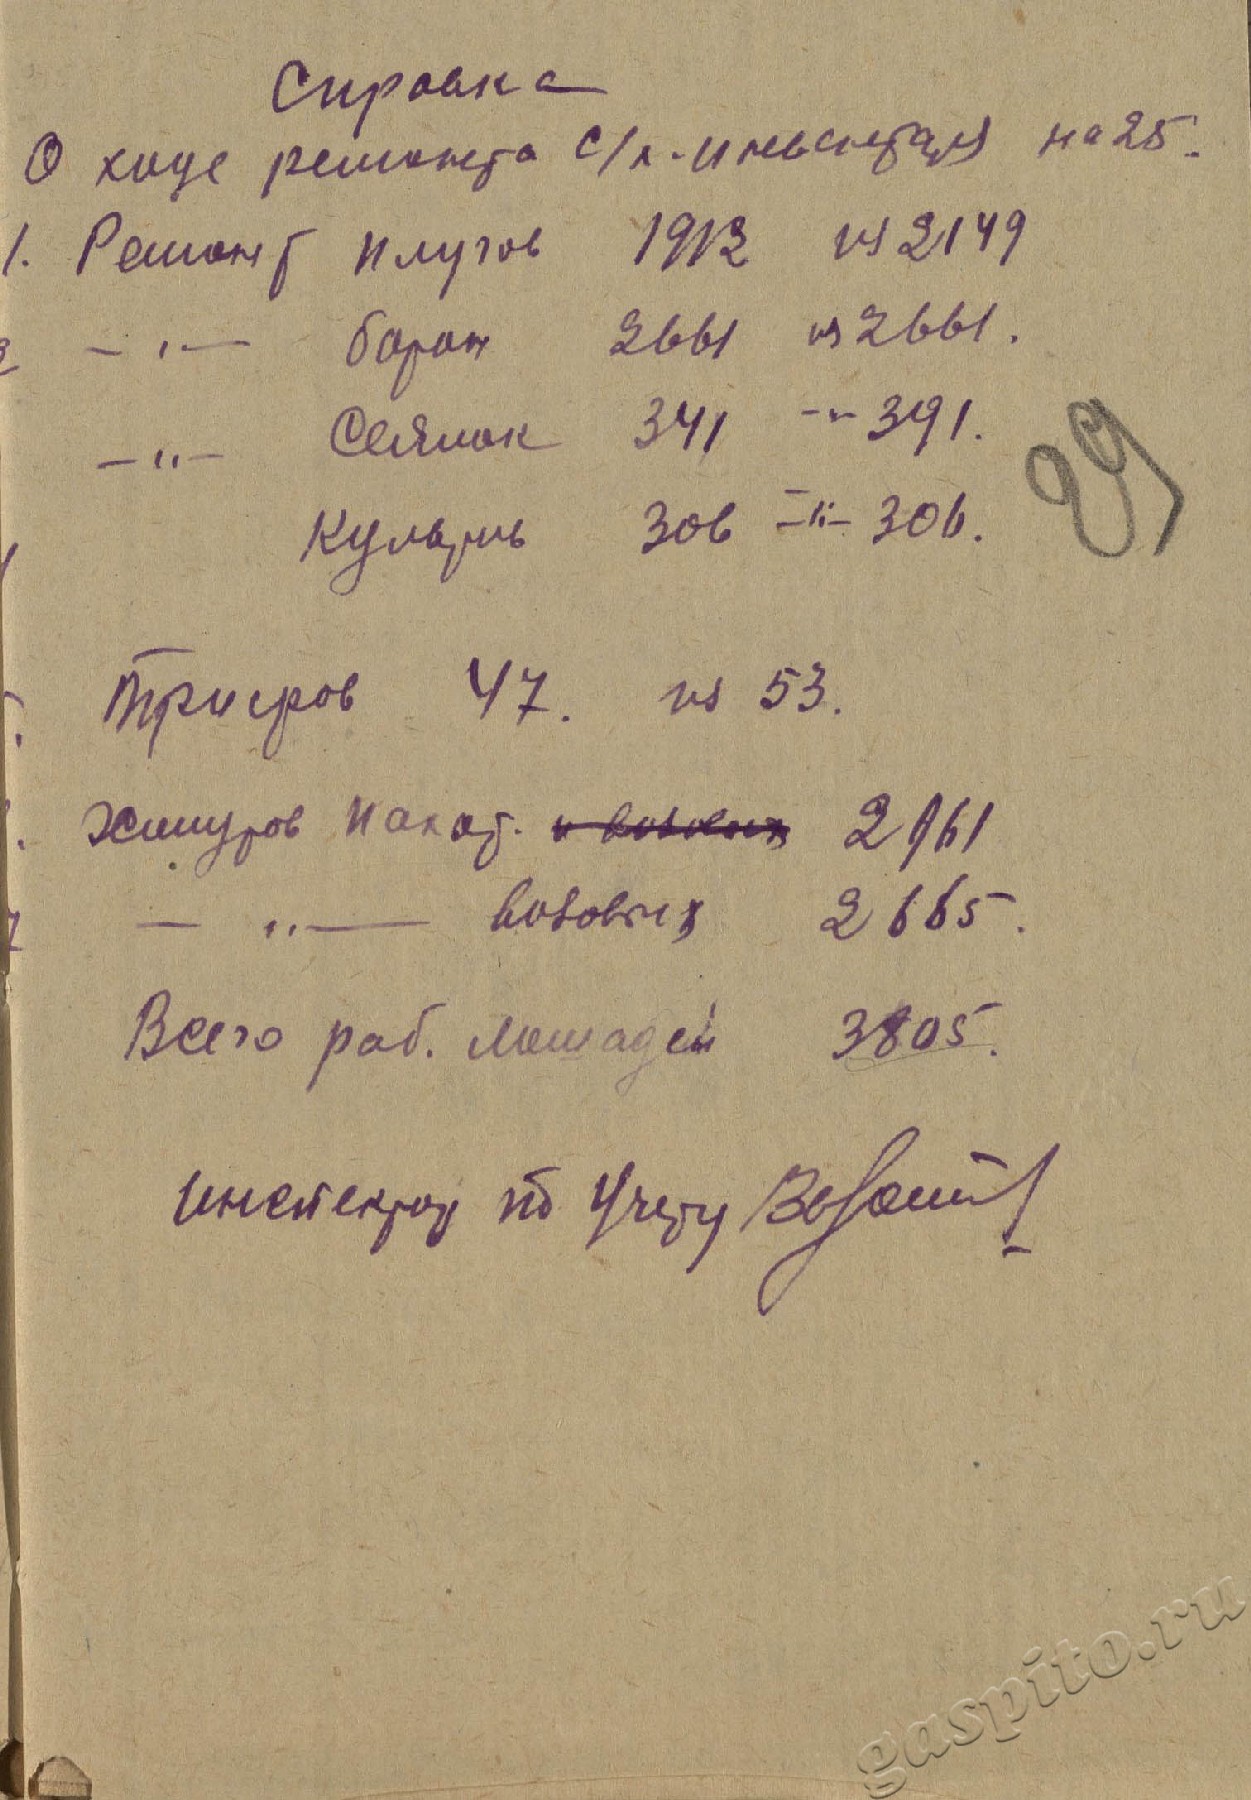 Справка
О ходе ремонта с/х-инвентаря на 25.
1. Ремонт плугов 1912 из 2149
2 — " — борон 2661 из 2661.
— " — Сеялок 341 -"- 391.
Культив 306 -"- 306.
29
Триеров 47. из 53.
Хомутов пахот. 2961
7 — " — возовых 2665.
Всего раб. лошадей 3805.
инспектор по учету
gaspito.ru